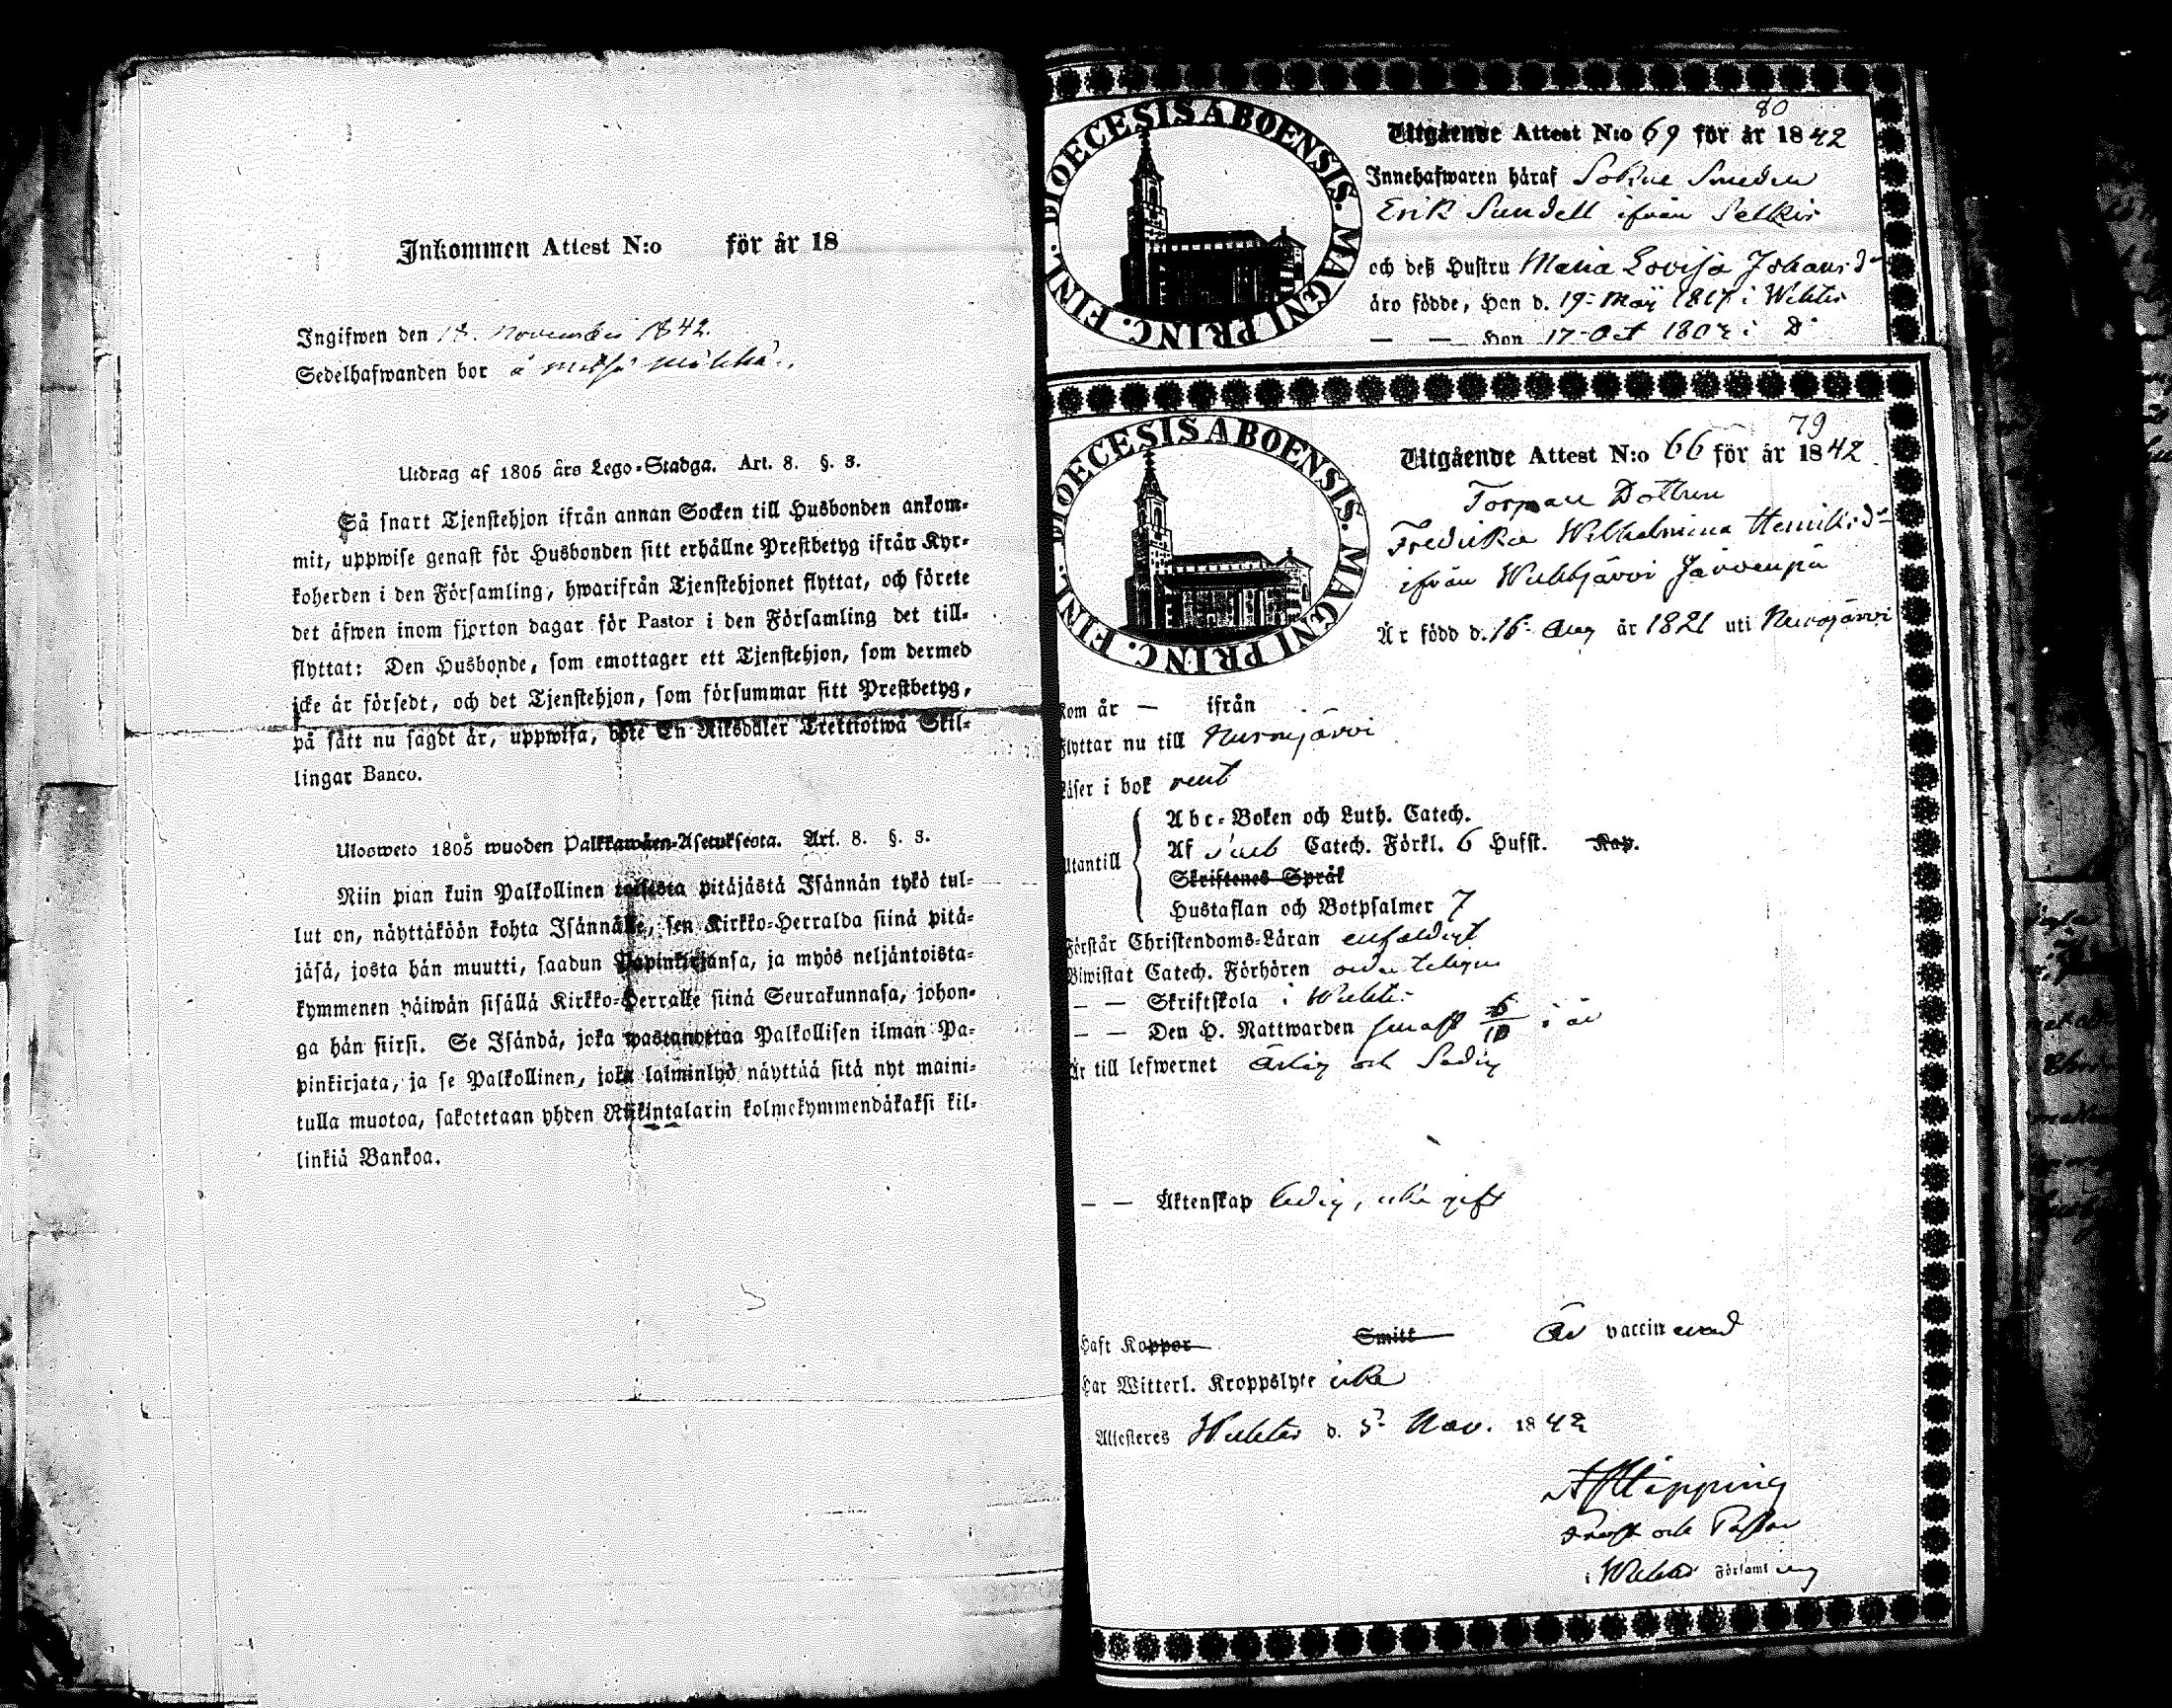 Inkommen Attest N:o för år 18
Ingifwen den 18. November 1842.
Sedelhafwanden bor å
Utdrag af 1805 års Lego-Stadga. Art. 8. §. 3.
Så snart Tjenstehjon ifrån annan Socken till Husbonden ankom-
mit, uppwise genast för Husbonden sitt erhållne Prestbetyg ifrån Kyr-
koherden i den Församling, hwarifrån Tjenstehjonet flyttat, och förete
det äfwen inom fjorton dagar för Pastor i den Församling det till-
flyttat: Den Husbonde, som emottager ett Tjenstehjon, som dermed
icke är försedt, och det Tjenstehjon, som försummar sitt Prestbetyg,
på sätt nu sagdt är, uppwisa, böte En Riksdaler Trettiotwå Skil-
lingar Banco.
Ulosweto 1805 wuoden Palkkawäen-Asetuksesta. Art. 8. §. 3.
Niin pian kuin Palkollinen toisesta pitäjästä Isännän tykö tul-
lut on, näyttäköön kohta Isännälle, sen Kirkko-Herralda siinä pitä-
jäsä, josta hän muutti, saadun Papinkirjansa, ja myös neljäntoista-
kymmenen päiwän sisällä Kirkko-Herralle siinä Seurakunnasa, johon-
ga hän siirsi. Se Isändä, joka wastanottaa Palkollisen ilman Pa-
pinkirjata, ja se Palkollinen, joka laiminlyö näyttää sitä nyt maini-
tulla muotoa, sakotetaan yhden Riikintalarin kolmekymmendäkaksi kil-
linkiä Bankoa.
DIOECESIS ABOENSIS. MAGNI PRINC. FINL.
80
Utgående Attest N:o 69 för år 1842
Innehafwaren häraf Sokne Smeden
Erik Sundell ifrån Selkis
och deß Hustru Maria Lovisa Johansdr
äro födde, Han d. 19 Maij 1817 i Wichtis
— — Hon 17 Oct 1807 i Do
DIOECESIS ABOENSIS. MAGNI PRINC. FINL.
79
Utgående Attest N:o 66 för år 1842.
Torpare Dottren
Fredrika Wilhelmina Henriksdr
ifrån Wichtjärvi Järvenpä
Är född d. 16 Aug år 1821 uti Nurmijärvi
Kom år — ifrån
Flyttar nu till Nurmijärvi
Läser i bok rent
Utantill
Abc-Boken och Luth. Catech.
Af Cateh. Förkl. 6 Hufst. Kap.
Skriftenes Språk
Hustaflan och Botpsalmer 7
Förstår Christendoms-Läran enfaldigt
Biwistat Catech. Förhören ordenteligen
— — Skriftskola i Wichtis
— — Den H. Nattwarden senast 6/10 i år
Är till lefwernet Ärlig och Sedig
— — Äktenskap ledig, icke gift
Haft Koppor Smitt Är vaccinerad
Har Witterl. Kroppslyte icke
Attesteres Wichtis d. 5 Nov. 1842
AJHipping
Prost och Pastor
i Wichtis Församling